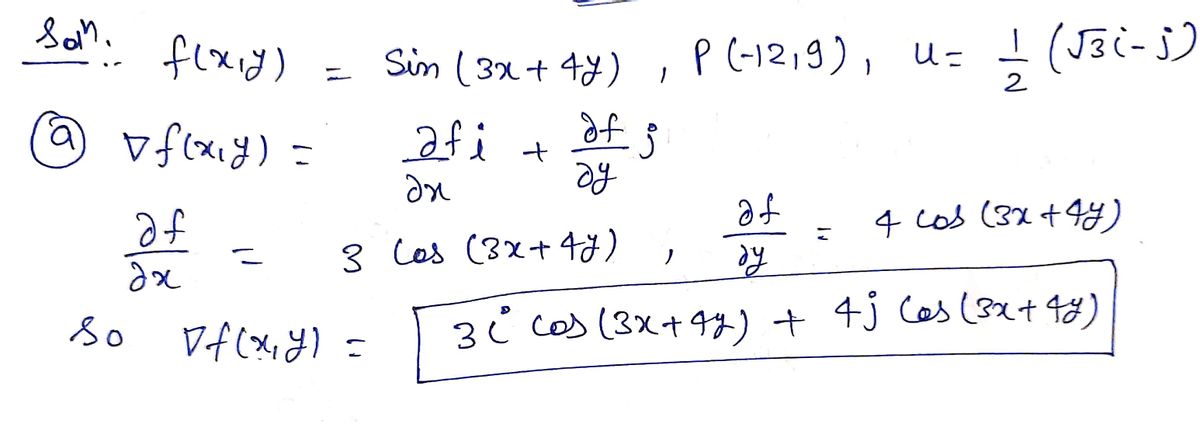 Soln:. f(x,y) = Sin (3x + 4y) , P (-12,9), u = 1/2 (√3i - j)
(a) ∇f(x,y) = ∂f/∂x i + ∂f/∂y j
∂f/∂x = 3 Cos (3x + 4y) , ∂f/∂y = 4 Cos (3x + 4y)
So ∇f(x,y) = 3i Cos (3x + 4y) + 4j Cos (3x + 4y)